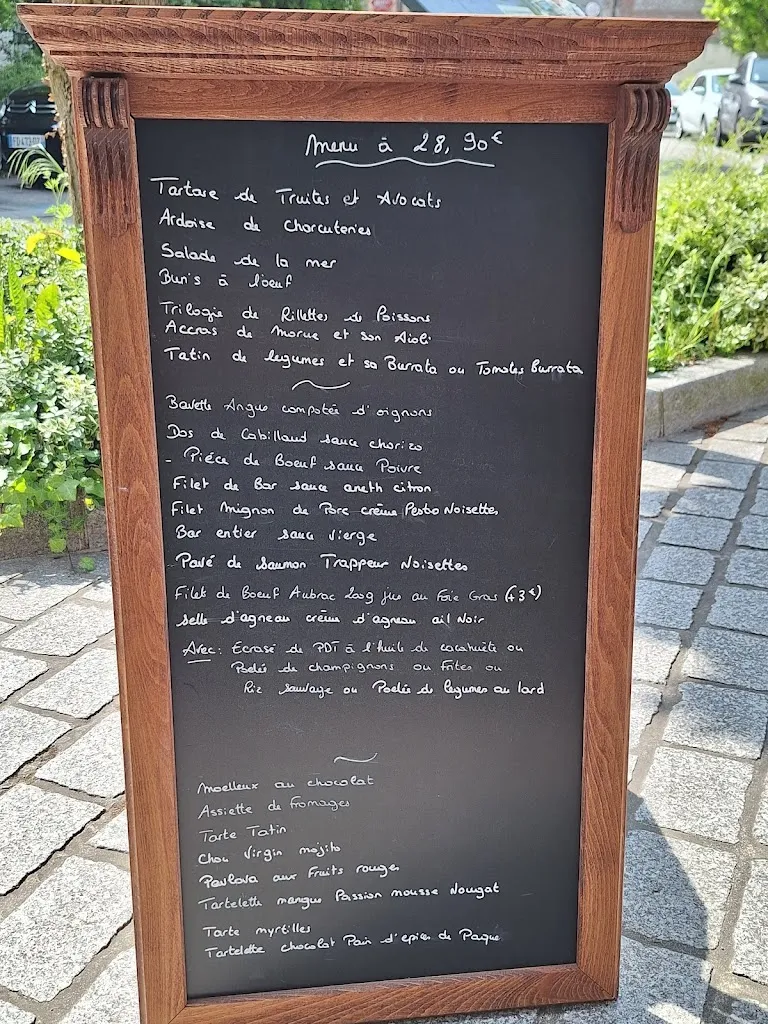 Menu à 28,90€
Tartare de Truites et Avocats
Ardoise de Charcuteries
Salade de la mer
Bun's à l'oeuf
Trilogie de Rillettes de Poissons
Accras de Morue et son Aioli
Tatin de legumes et sa Burrata ou Tomates Burrata
Bavette Angus compotée d'oignons
Dos de Cabillaud sauce chorizo
- Piéce de Boeuf sauce Poivre
Filet de Bar sauce aneth citron
Filet Mignon de Porc crème Pesto Noisettes
Bar entier sauce Vierge
Pavé de Saumon Trappeur Noisettes
Filet de Boeuf Aubrac 200g jus au Foie Gras (+3€)
Selle d'agneau crème d'agneau ail Noir
Avec: Ecrasé de PDT à l'huile de cacahuète ou
Poelés de champignons ou Frites ou
Riz sauvage ou Poelés de legumes au lard
Moelleux au chocolat
Assiette de Fromages
Tarte Tatin
Chou Virgin mojito
Pavlova aux Fruits rouges
Tartelette mangue Passion mousse Nougat
Tarte myrtilles
Tartelette chocolat Pain d'epices de Paque